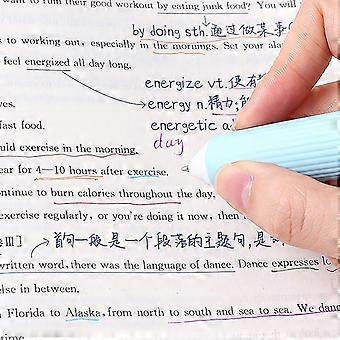 want to ruin their good workout by eating junk food? You will
by doing sth. 通过做某事
s to working out, especially in the mornings. Set your ala
feel energized all day long.
energize vt. 使有
ves.
energy n. 精力;能
fast food.
energetic a
uld exercise in the morning.
day
ear for 4—10 hours after exercise.
ntinue to burn calories throughout the day,
exercise regularly, or you're doing it now, then
Ⅲ] 首句一般是一个段落的主题句,是
written word, there was the language of dance. Dance expresses lo
else in between.
Florida to Alaska, from north to south and sea to sea. We danc
time.